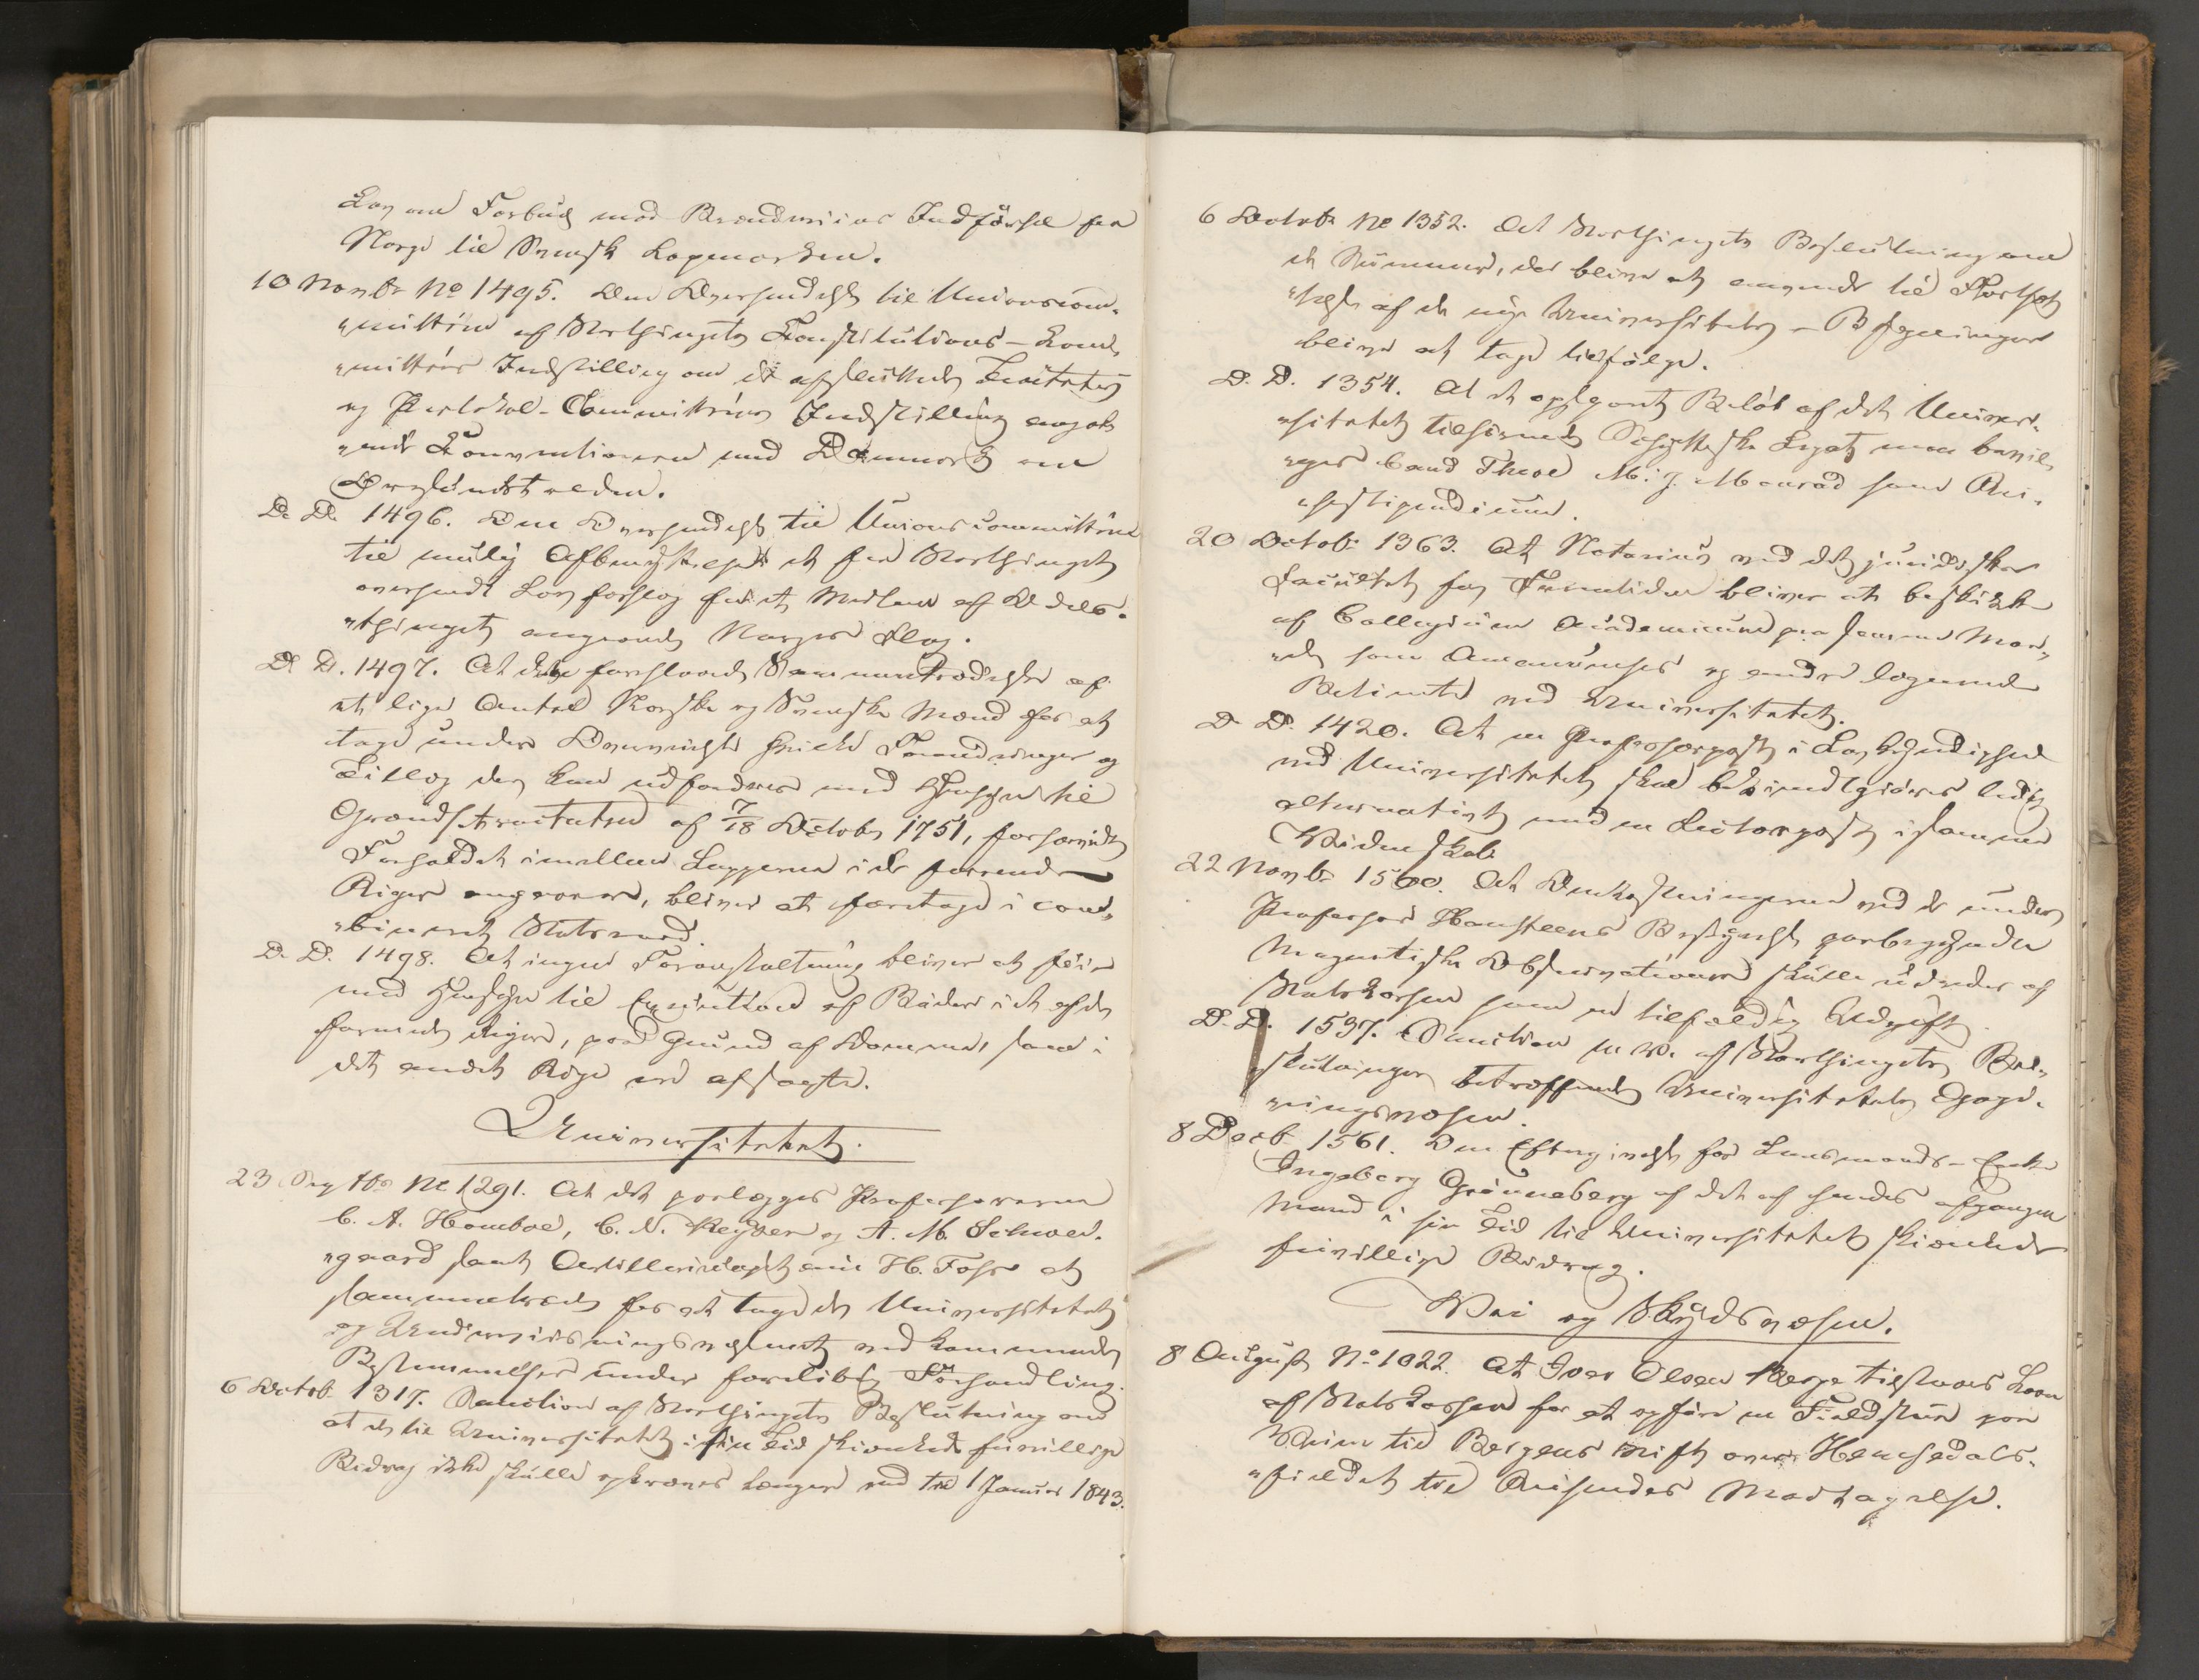 Lov om Forbud mod Brændeviins Indførsel fra
Norge til Svensk Lapmarken.
10 Novbr No 1495. Om Oversendelse til Unionscom-
"mitteen af Storthingets Constitutions-Com-
"mittees Indstilling om de afsluttede Tractater
og Protokol-Committeens Indstilling angaa-
"ende Conventionen med Danmark om
Øresundstolden.
D. D. 1496. Om Oversendelse til Unionscommitteen
til mulig Afbenyttelse et fra Storthinget
oversendt Lovforslag fra et Medlem af Odels-
"thinget angaaende Norges Flag.
D. D. 1497. At den foreslaaede Sammentrædelse af
et lige Antal Norske og Svenske Mænd for at
tage under Overveielse hvilke Forandringer og
Tillæg der kan udfordres med Hensyn til
Grændsetractaten af 7/18 October 1751, forsaavidt
Forholdet imellem Lapperne i de forenede
Riger angaaer, bliver at foretage i com-
"bineret Statsraad.
D. D. 1498. At ingen Foranstaltning bliver at føie
med Hensyn til Execution af Bøder i et af de
forenede Riger, paa Grund af Domme, som i
det andet Rige ere afsagte.
Universitetet.
23 Septbr No 1291. At det paalægges Professorerne
C. A. Holmboe, C. N. Keyser og A. M. Schwei-
"gaard samt Artillericapitain H. Foss at
sammentræde for at tage de Universitetet
og Underviisningsvæsenet vedkommende
Bestemmelser under foreløbig Forhandling.
6 Octob. 1317. Sanction af Storthingets Beslutning om
at de til Universitetet i sin Tid skjænkede frivillige
Bidrag ikke skulle opkræves længere end til 1 Januar 1843.
6 Octobr No 1352. At Storthingets Beslutning om
de Summer, der bliver at anvende til Fortsæt-
"telse af de nye Universitets-Bygninger
bliver at tage tilfølge.
D. D. 1354. At et opsparet Beløb af det Univer-
"sitetet tilhørende Schytteske Legat maa bevil-
"ges Cand Theol M. J. Monrad som Rei-
"sestipendium.
20 Octob. 1363. At Notarius ved det juridiske
Facultet for Fremtiden bliver at beskikke
af Collegium Academicum paa samme Maa-
"de som Amanuenses og andre lignende
Betjente ved Universitetet.
D. D. 1420. At en Professorpost i Lovkyndighed
ved Universitetet skal bekjendtgjøres ledig
alternativt med en Lectorpost i samme
Videnskab
22 Novbr 1500. At Omkostningerne ved de under
Professor Hansteens Bestyrelse foregaaende
Magnetiske Observationer skulle udredes af
Statskassen som en tilfældig Udgift.
D. D. 1537. Sanction m. v. af Storthingets Be-
"slutninger betræffende Universitetets Gage-
"ringsvæsen.
8 Decb. 1561. Om Eftergivelse for Lensmands-Enke
Ingeborg Grønneberg af det af hendes afgangne
Mand i sin Tid til Universitetet skjænkede
frivillige Bidrag.
Vei og Skydsvæsen.
8 August No 1022. At Iver Olsen Berge tilstaaes Laan
af Statskassen for at opføre en Fjeldstue paa
Veien til Bergens Stift over Hemsedals-
"fjeldet til Reisendes Modtagelse.